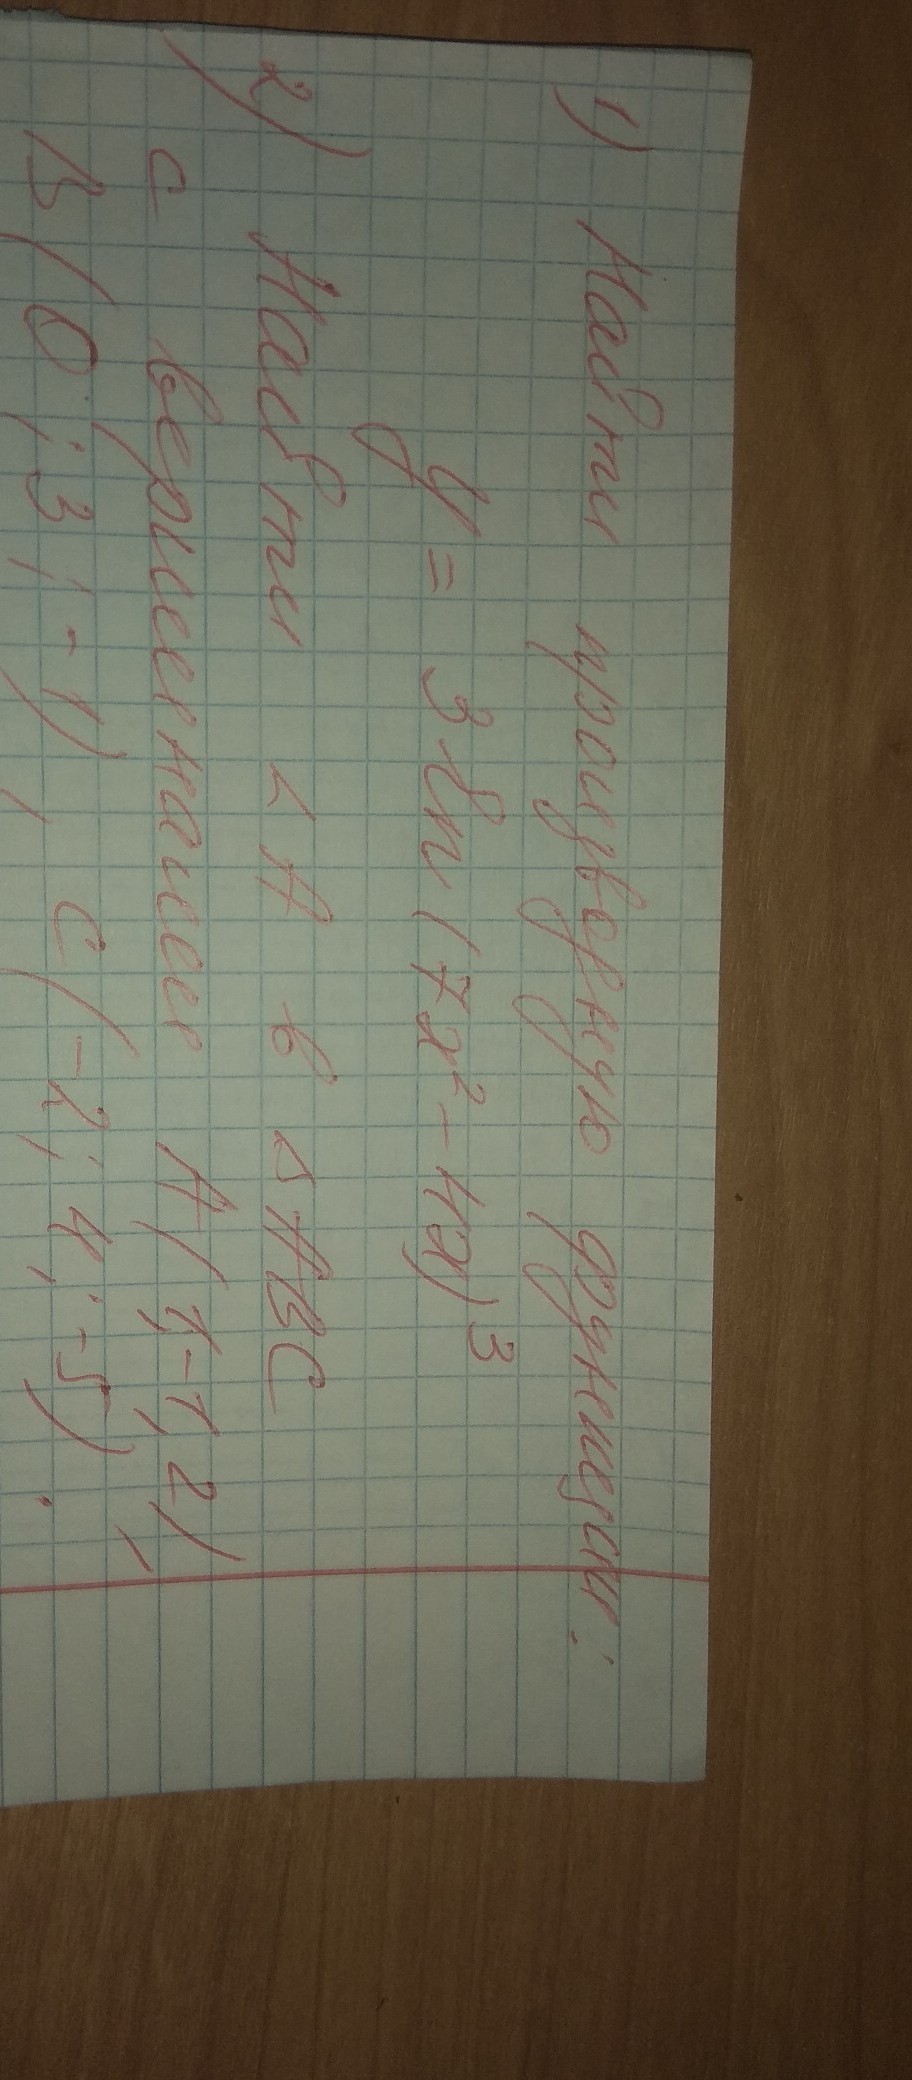 1) Найти производную функции:
y = 3 ln (7x² - 4x)³
2) Найти < A в Δ ABC
с вершинами A(1,-1,2),
B(0;3;-1), C(-2;4;-5).